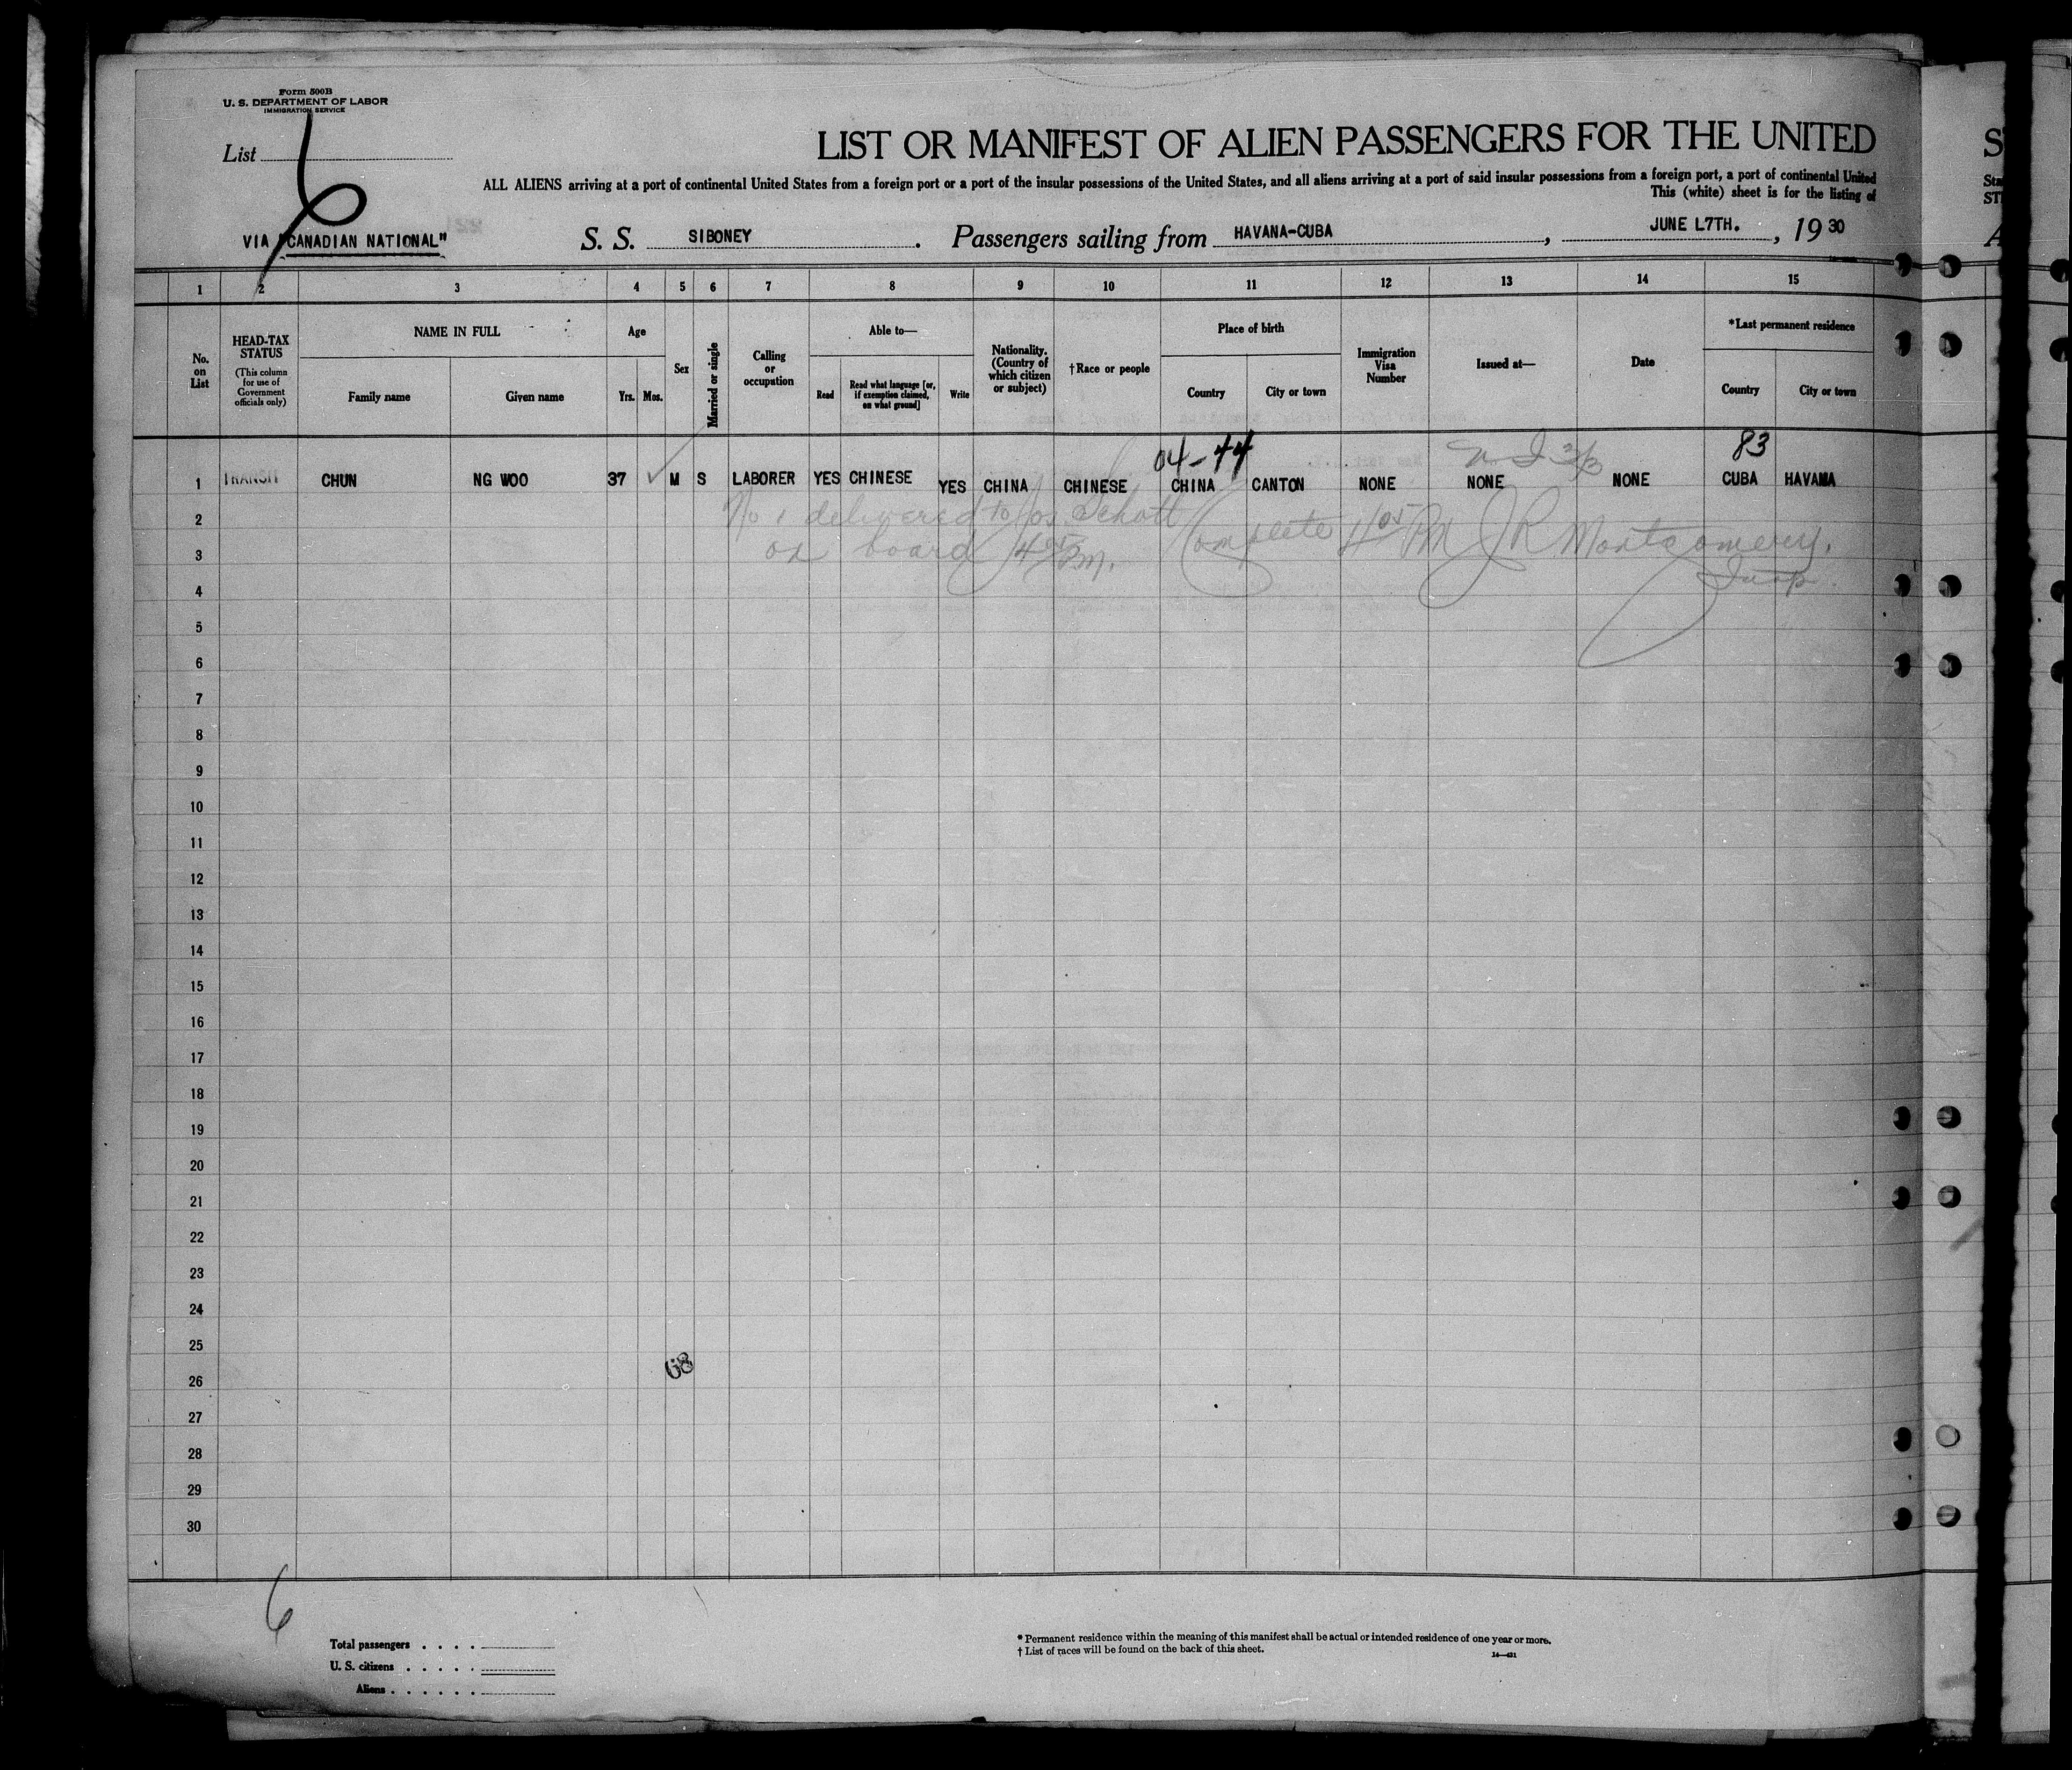 Form 500B
U. S. DEPARTMENT OF LABOR
IMMIGRATION SERVICE
List 6
LIST OR MANIFEST OF ALIEN PASSENGERS FOR THE UNITED
ALL ALIENS arriving at a port of continental United States from a foreign port or a port of the insular possessions of the United States, and all aliens arriving at a port of said insular possessions from a foreign port, a port of continental United
This (white) sheet is for the listing of
VIA "CANADIAN NATIONAL" S. S. SIBONEY. Passengers sailing from HAVANA-CUBA, JUNE L7TH., 1930
1 2 3 4 5 6 7 8 9 10 11 12 13 14 15
No. on List
HEAD-TAX STATUS (This column for use of Government officials only)
NAME IN FULL
Family name Given name
Age
Yrs. Mos.
Sex
Married or single
Calling or occupation
Able to—
Read Read what language [or, if exemption claimed, on what ground] Write
Nationality. (Country of which citizen or subject)
†Race or people
Place of birth
Country City or town
Immigration Visa Number
Issued at—
Date
*Last permanent residence
Country City or town
04-44 83
1 TRANSIT CHUN NG WOO 37 M S LABORER YES CHINESE YES CHINA CHINESE CHINA CANTON NONE NONE NONE CUBA HAVANA
2 No 1 delivered to Jos. Schott
3 on board 4 05 P.M. Complete 4 05 PM J R Montgomery.
4 Insp.
5
6
7
8
9
10
11
12
13
14
15
16
17
18
19
20
21
22
23
24
25
68
26
27
28
29
30
6
Total passengers . . . .
U. S. citizens . . . . .
Aliens . . . . . .
* Permanent residence within the meaning of this manifest shall be actual or intended residence of one year or more.
† List of races will be found on the back of this sheet.
14—431